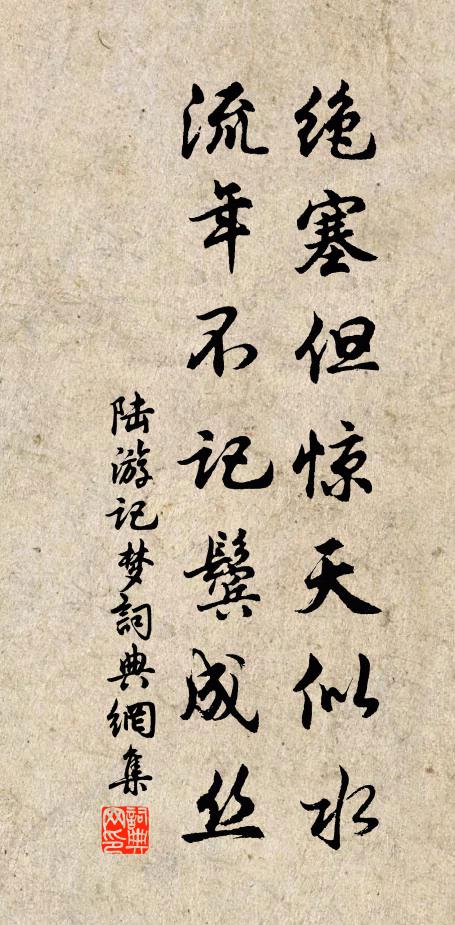 绝塞但惊天似水
流年不记鬓成丝
陆游记梦詞典網集
詞典網印